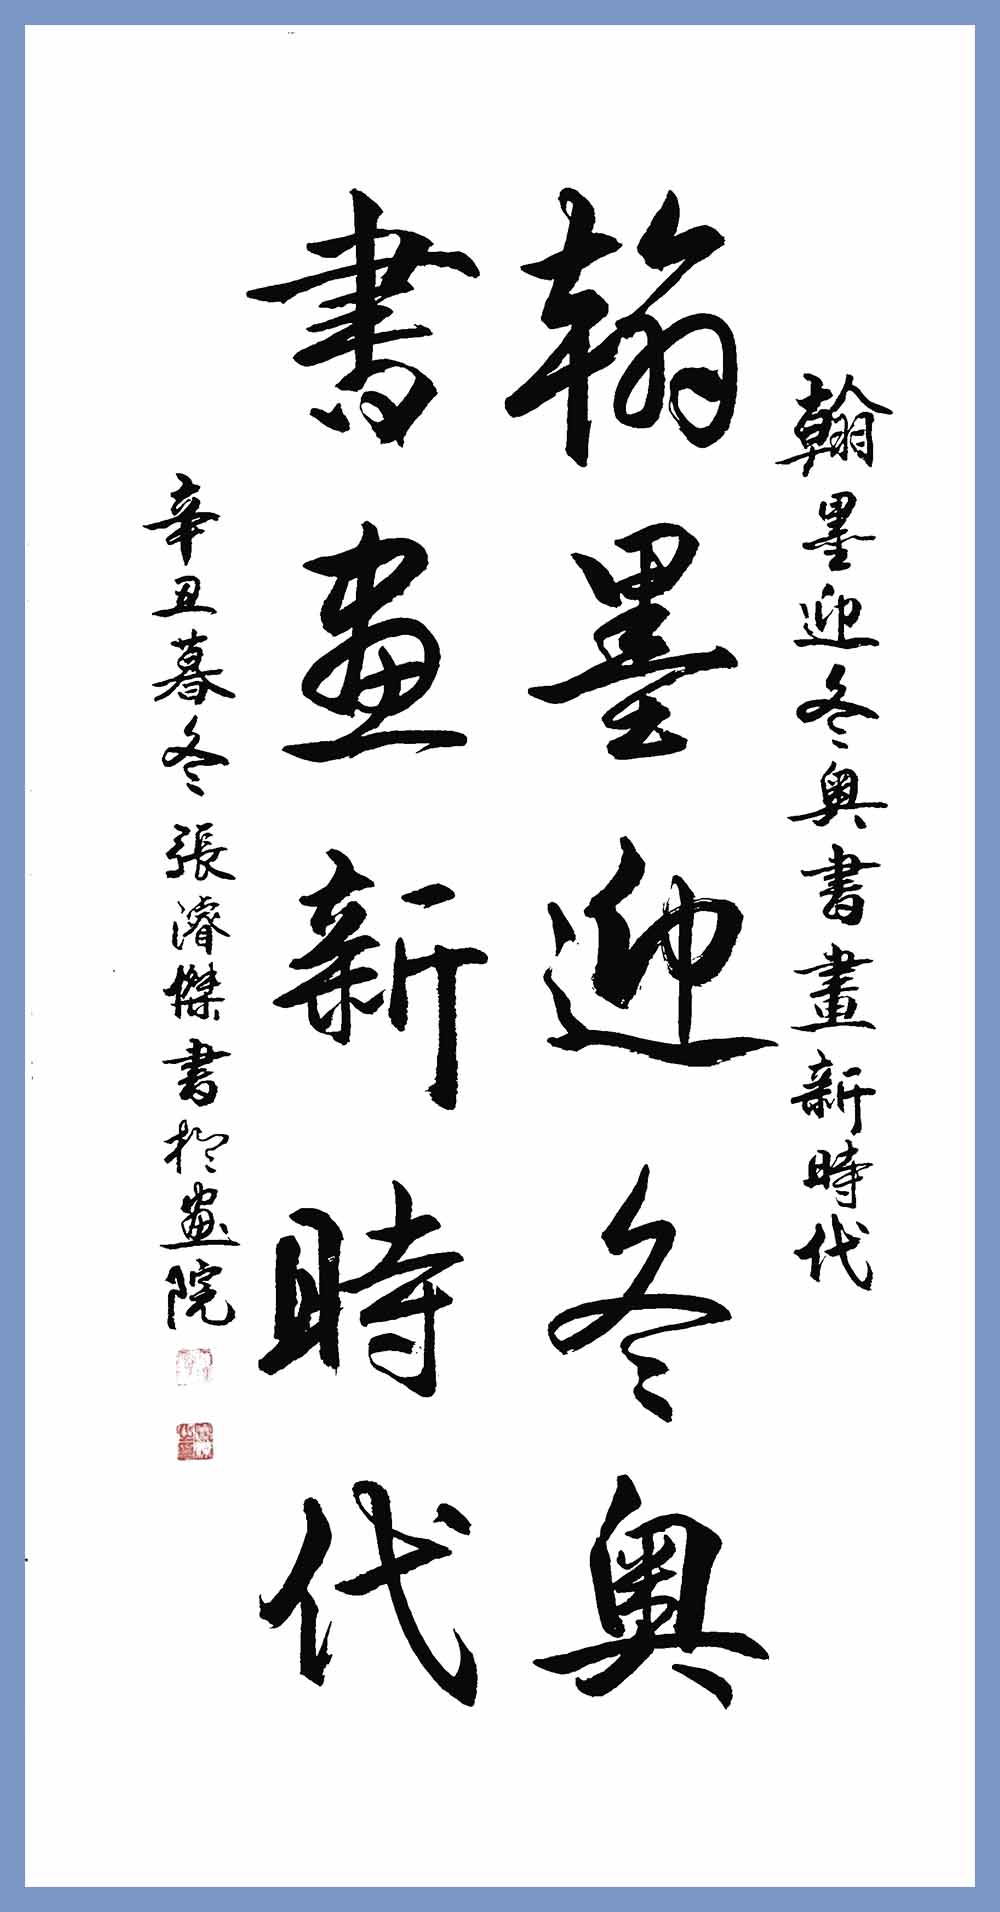 翰墨迎冬奥書畫新時代
翰墨迎冬奥
書畫新時代
辛丑暮冬張濬傑書於畫院